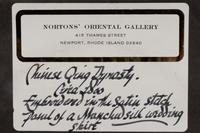 NORTONS' ORIENTAL GALLERY
415 THAMES STREET
NEWPORT, RHODE ISLAND 02840
Chinese Qing Dynasty.
Circa 1800
Embroidered in the Satin stitch
Panel of a Manchu silk wedding
skirt